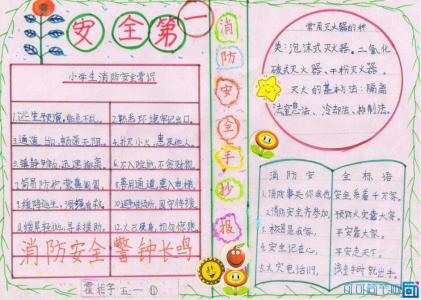 安全第一
小学生消防安全常识
1.逃生预演,临危不乱。
2.熟悉环境,牢记出口。
3.通道出口,畅通无阻。
4.扑灭小火,惠及他人。
5.镇静辨向,迅速撤离。
6.不入险地,不贪财物。
7.简易防护,
8.善用通道,莫入电梯。
9.缓降逃生,滑绳自救。
10.避难场所,固守待援。
11.缓晃轻抛,寻求援助。
12.火已及身,切勿惊跑。
消防安全 警钟长鸣
霍 五一①
消防安全手抄报
常用灭火器的种
类:泡沫式灭火器。二氧化
碳式灭火器。干粉灭火器。
灭火的基本方法:隔离
法窒息法、冷却法、抑制法。
消防安
全标语
1.消防事关你我他,安全系着千万家。
2.消防安全齐参加,预防火灾靠大家。
3.
平安靠大家。
4.安全记在心,
平安走天下。
5.火灾电话119,